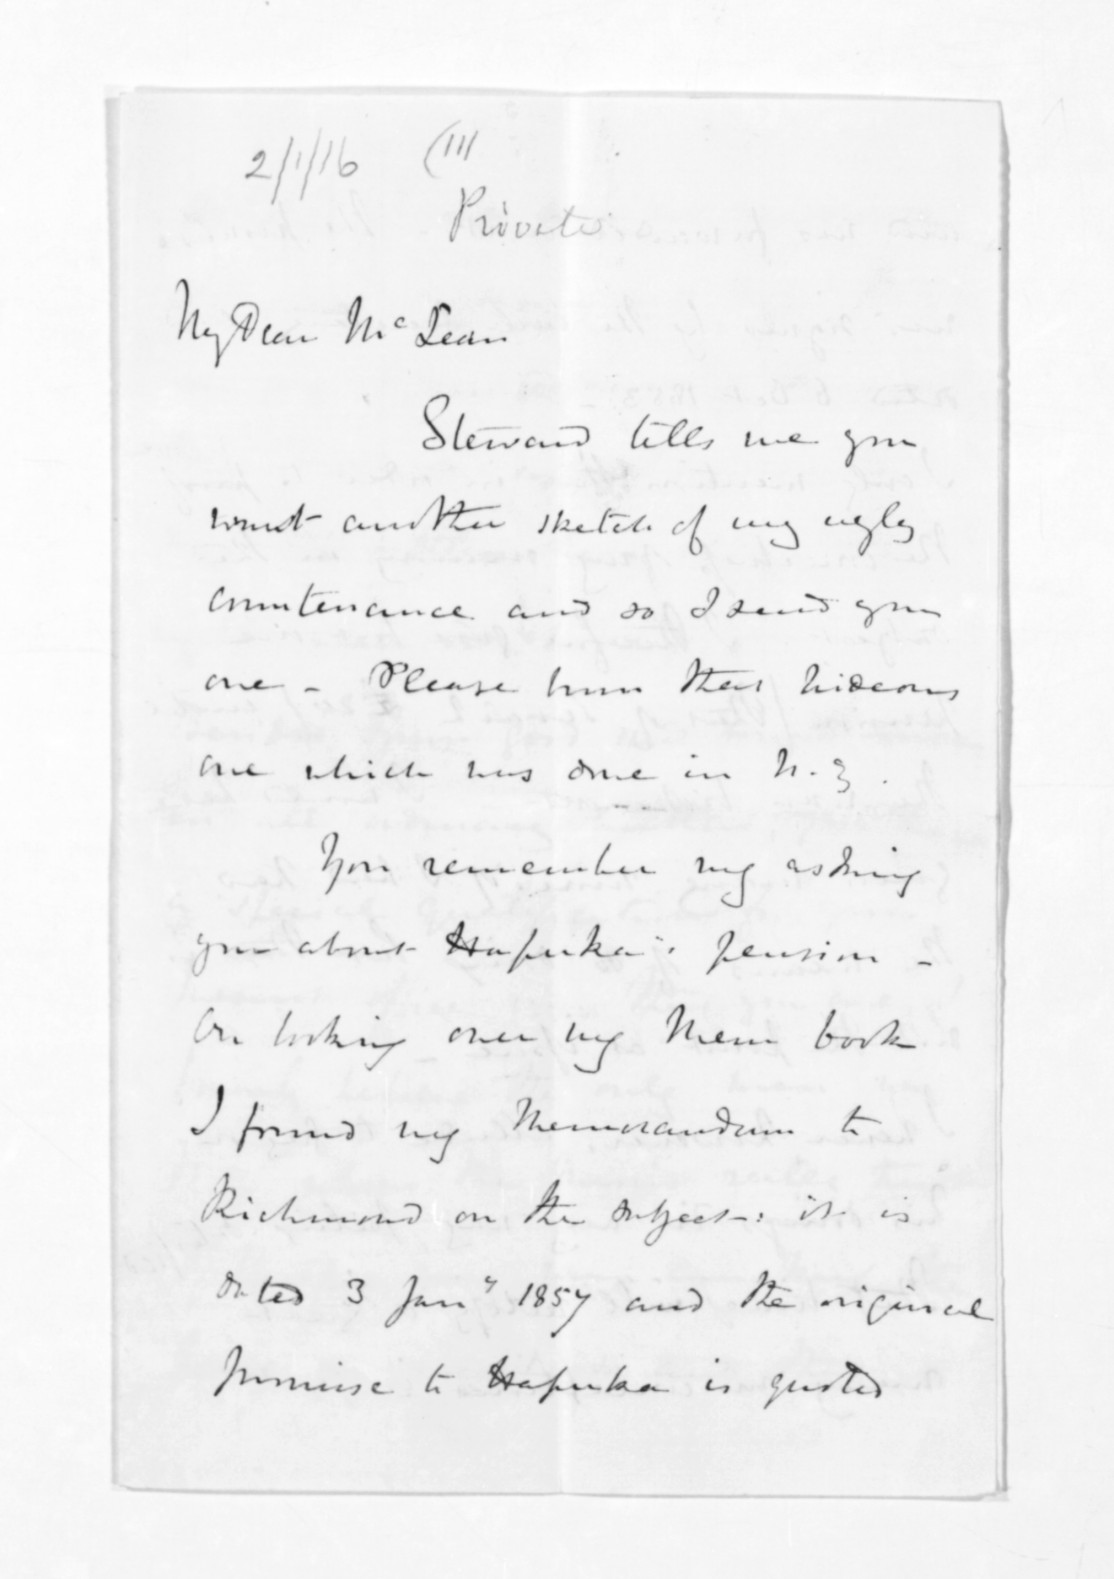 2/1/16 (111
Private
My Dear McLean
Steward tells me you
want another sketch of my ugly
countenance and so I send you
one - Please burn that hideous
one which was done in N.Z.
You remember my asking
you about Hapuka's pension -
On looking over my Mem book
I found my Memorandum to
Richmond on the subject: it is
dated 3 Jany 1857 and the original
promise to Hapuka is quoted